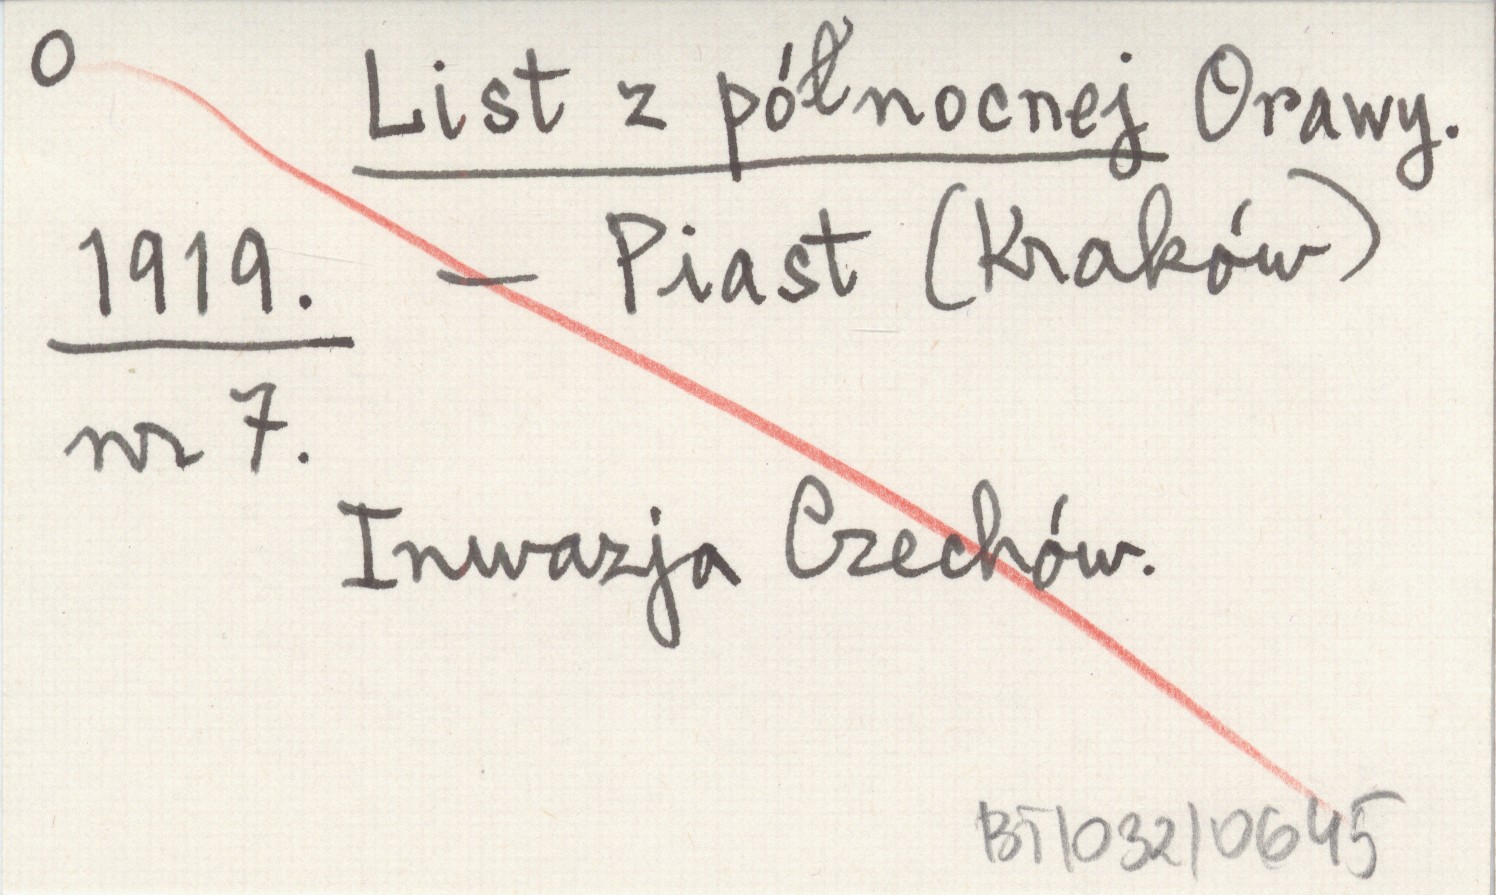 O
List z północnej Orawy.
1919. — Piast (Kraków)
nr 7.
Inwazja Czechów.
BT/032/0645